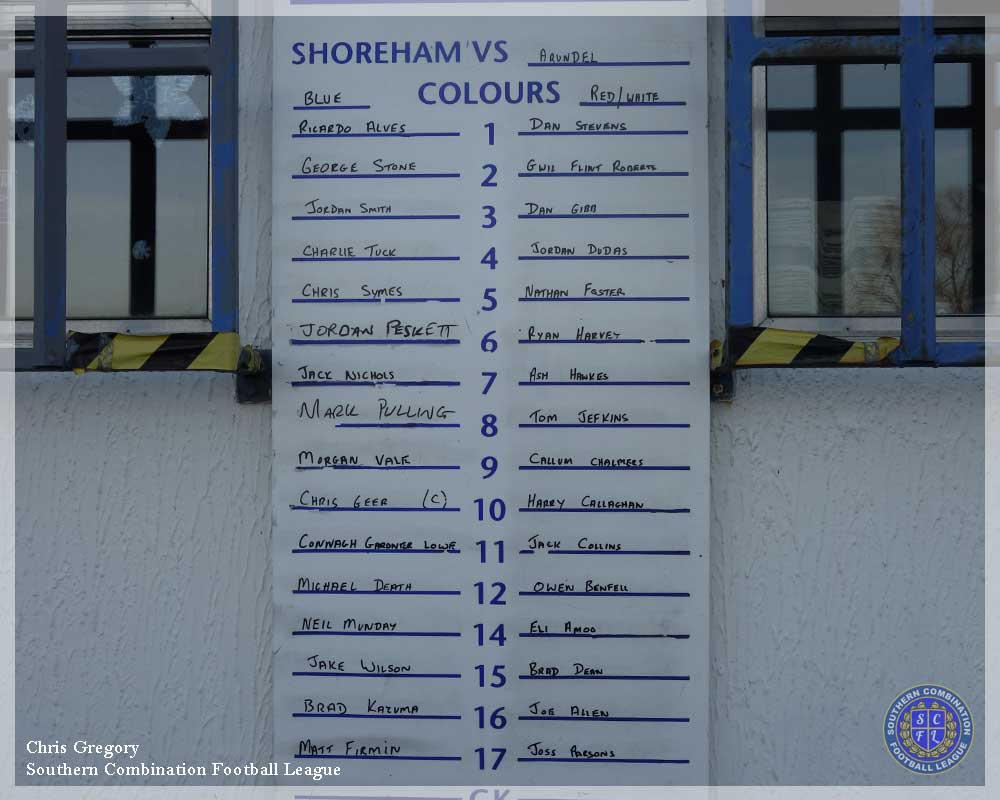 SHOREHAM VS ARUNDEL
BLUE COLOURS RED/WHITE
RICARDO ALVES 1 DAN STEVENS
GEORGE STONE 2 GWIL FLINT ROBERTS
JORDAN SMITH 3 DAN GIBB
CHARLIE TUCK 4 JORDAN DUDAS
CHRIS SYMES 5 NATHAN FOSTER
JORDAN PESKETT 6 RYAN HARVEY
JACK NICHOLS 7 ASH HAWKES
MARK PULLING 8 TOM JEFKINS
MORGAN VALE 9 CALLUM CHALMERS
CHRIS GEER (C) 10 HARRY CALLAGHAN
CONNAGH GARDNER LOWE 11 JACK COLLINS
MICHAEL DEATH 12 OWEN BENFELL
NEIL MUNDAY 14 ELI AMOO
JAKE WILSON 15 BRAD DEAN
BRAD KAZUMA 16 JOE ALLEN
MATT FIRMIN 17 JOSS PARSONS
Chris Gregory
Southern Combination Football League
SOUTHERN COMBINATION
SCFL
FOOTBALL LEAGUE